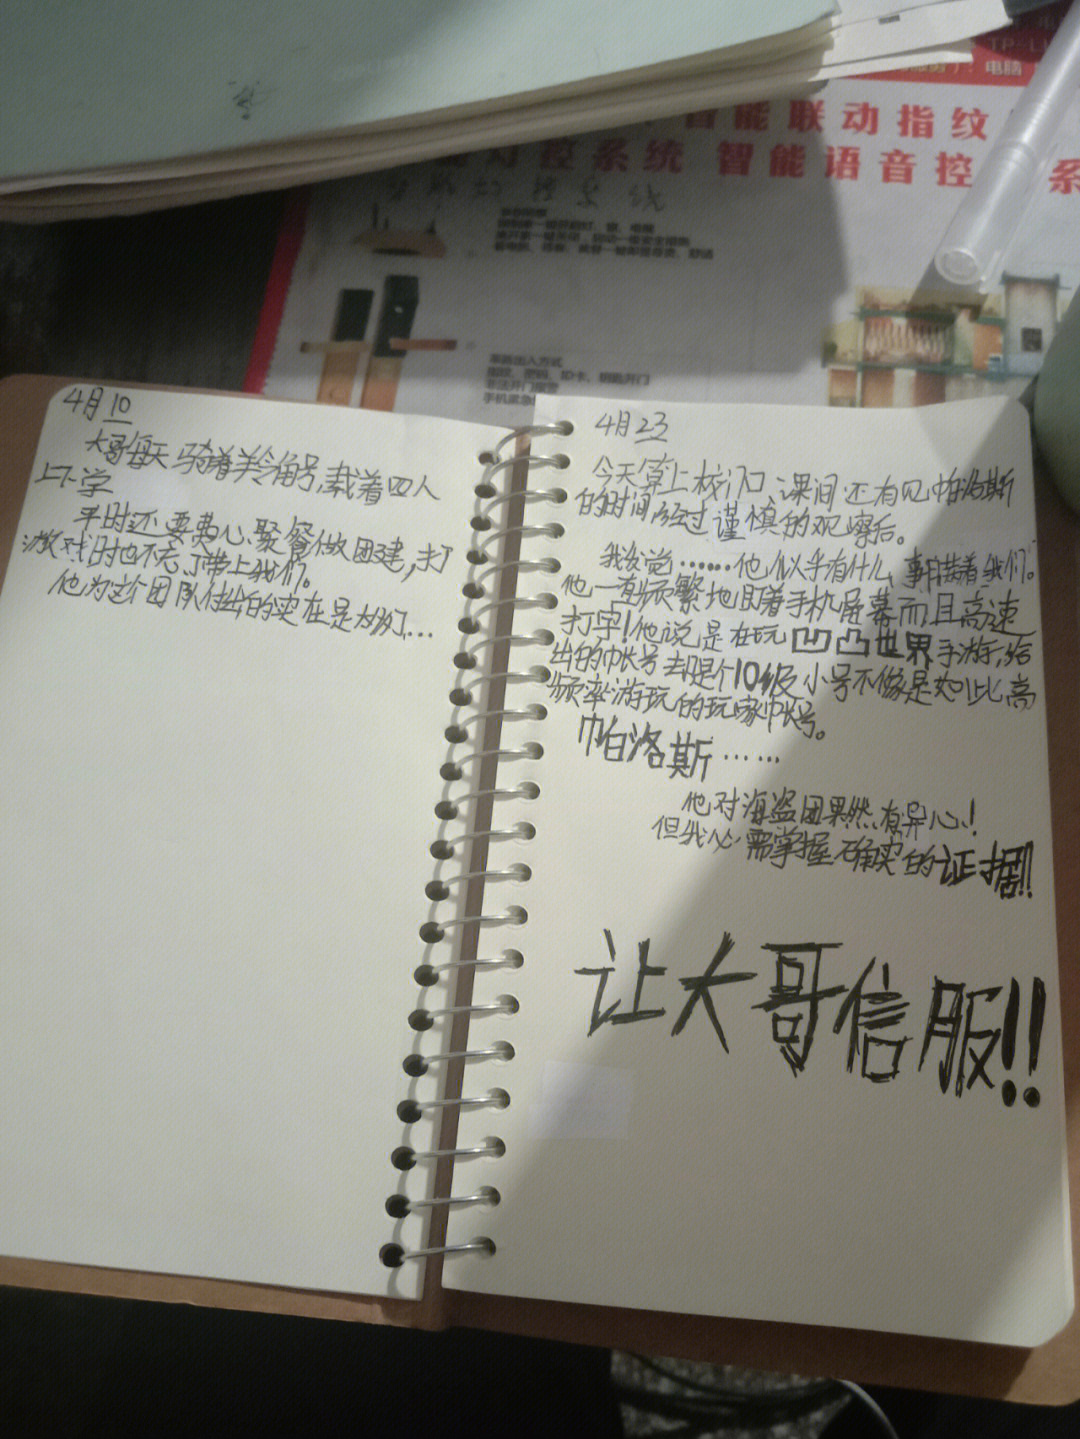 TP-L
电脑
智能联动指纹
灯控系统 智能语音控 系
手机
4月10
大哥每天骑着羚角号,载着四人
上下学
平时还要费心聚餐做团建,打
游戏时也不忘了带上我们。
他为这个团队付出的实在是太多了...
4月23
今天算上校门口课间还有见帕洛斯
的时间,经过谨慎的观察后。
我发觉……他似乎有什么事瞒着我们。
他一直频繁地盯着手机屏幕而且高速
打字!他说是在玩凹凸世界手游,给
出的帐号却是个10级小号不像是如此高
频率游玩的玩家帐号。
帕洛斯……
他对海盗团果然有异心!
但我必需掌握确实的证据!!
让大哥信服!!